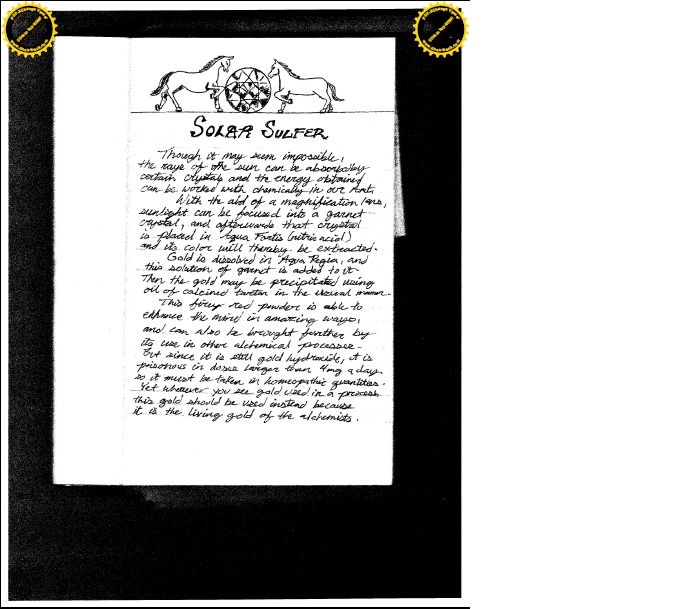 SOLAR SULFER
Though it may seem impossible,
the rays of the sun can be absorbed by
certain crystals and the energy obtained
can be worked with chemically in our Art.
With the aid of a magnification lens,
sunlight can be focused into a garnet
crystal, and afterwards that crystal
is placed in Aqua Fortis (nitric acid)
and its color will thereby be extracted.
Gold is dissolved in Aqua Regia, and
this solution of garnet is added to it.
Then the gold may be precipitated using
oil of calcined tartar in the usual manner.
This firey red powder is able to
enhance the mind in amazing ways,
and can also be brought further by
its use in other alchemical processes.
But since it is still gold hydroxide, it is
poisonous in doses larger than 4mg a day
so it must be taken in homeopathic quantities.
Yet wherever you see gold used in a process
this gold should be used instead because
it is the living gold of the alchemists.